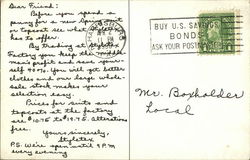 Dear Friend:
Before you spend a
penny for a new Spring suit
or topcoat see what
has to offer!
By Trading at
Factory you keep the middle
man's profit and save your-
self 40%. You will get better
clothes and our large whole-
sale stock makes your
selection easy.
Prices for suits and
topcoats at the factory
are $10.75 to $19.75. Alterations
free.
Yours sincerely,
P.S. We're open until 9 P.M
every evening
BUY U.S. SAVINGS
BONDS
ASK YOUR POSTMASTER
Mr. Boxholder
Local